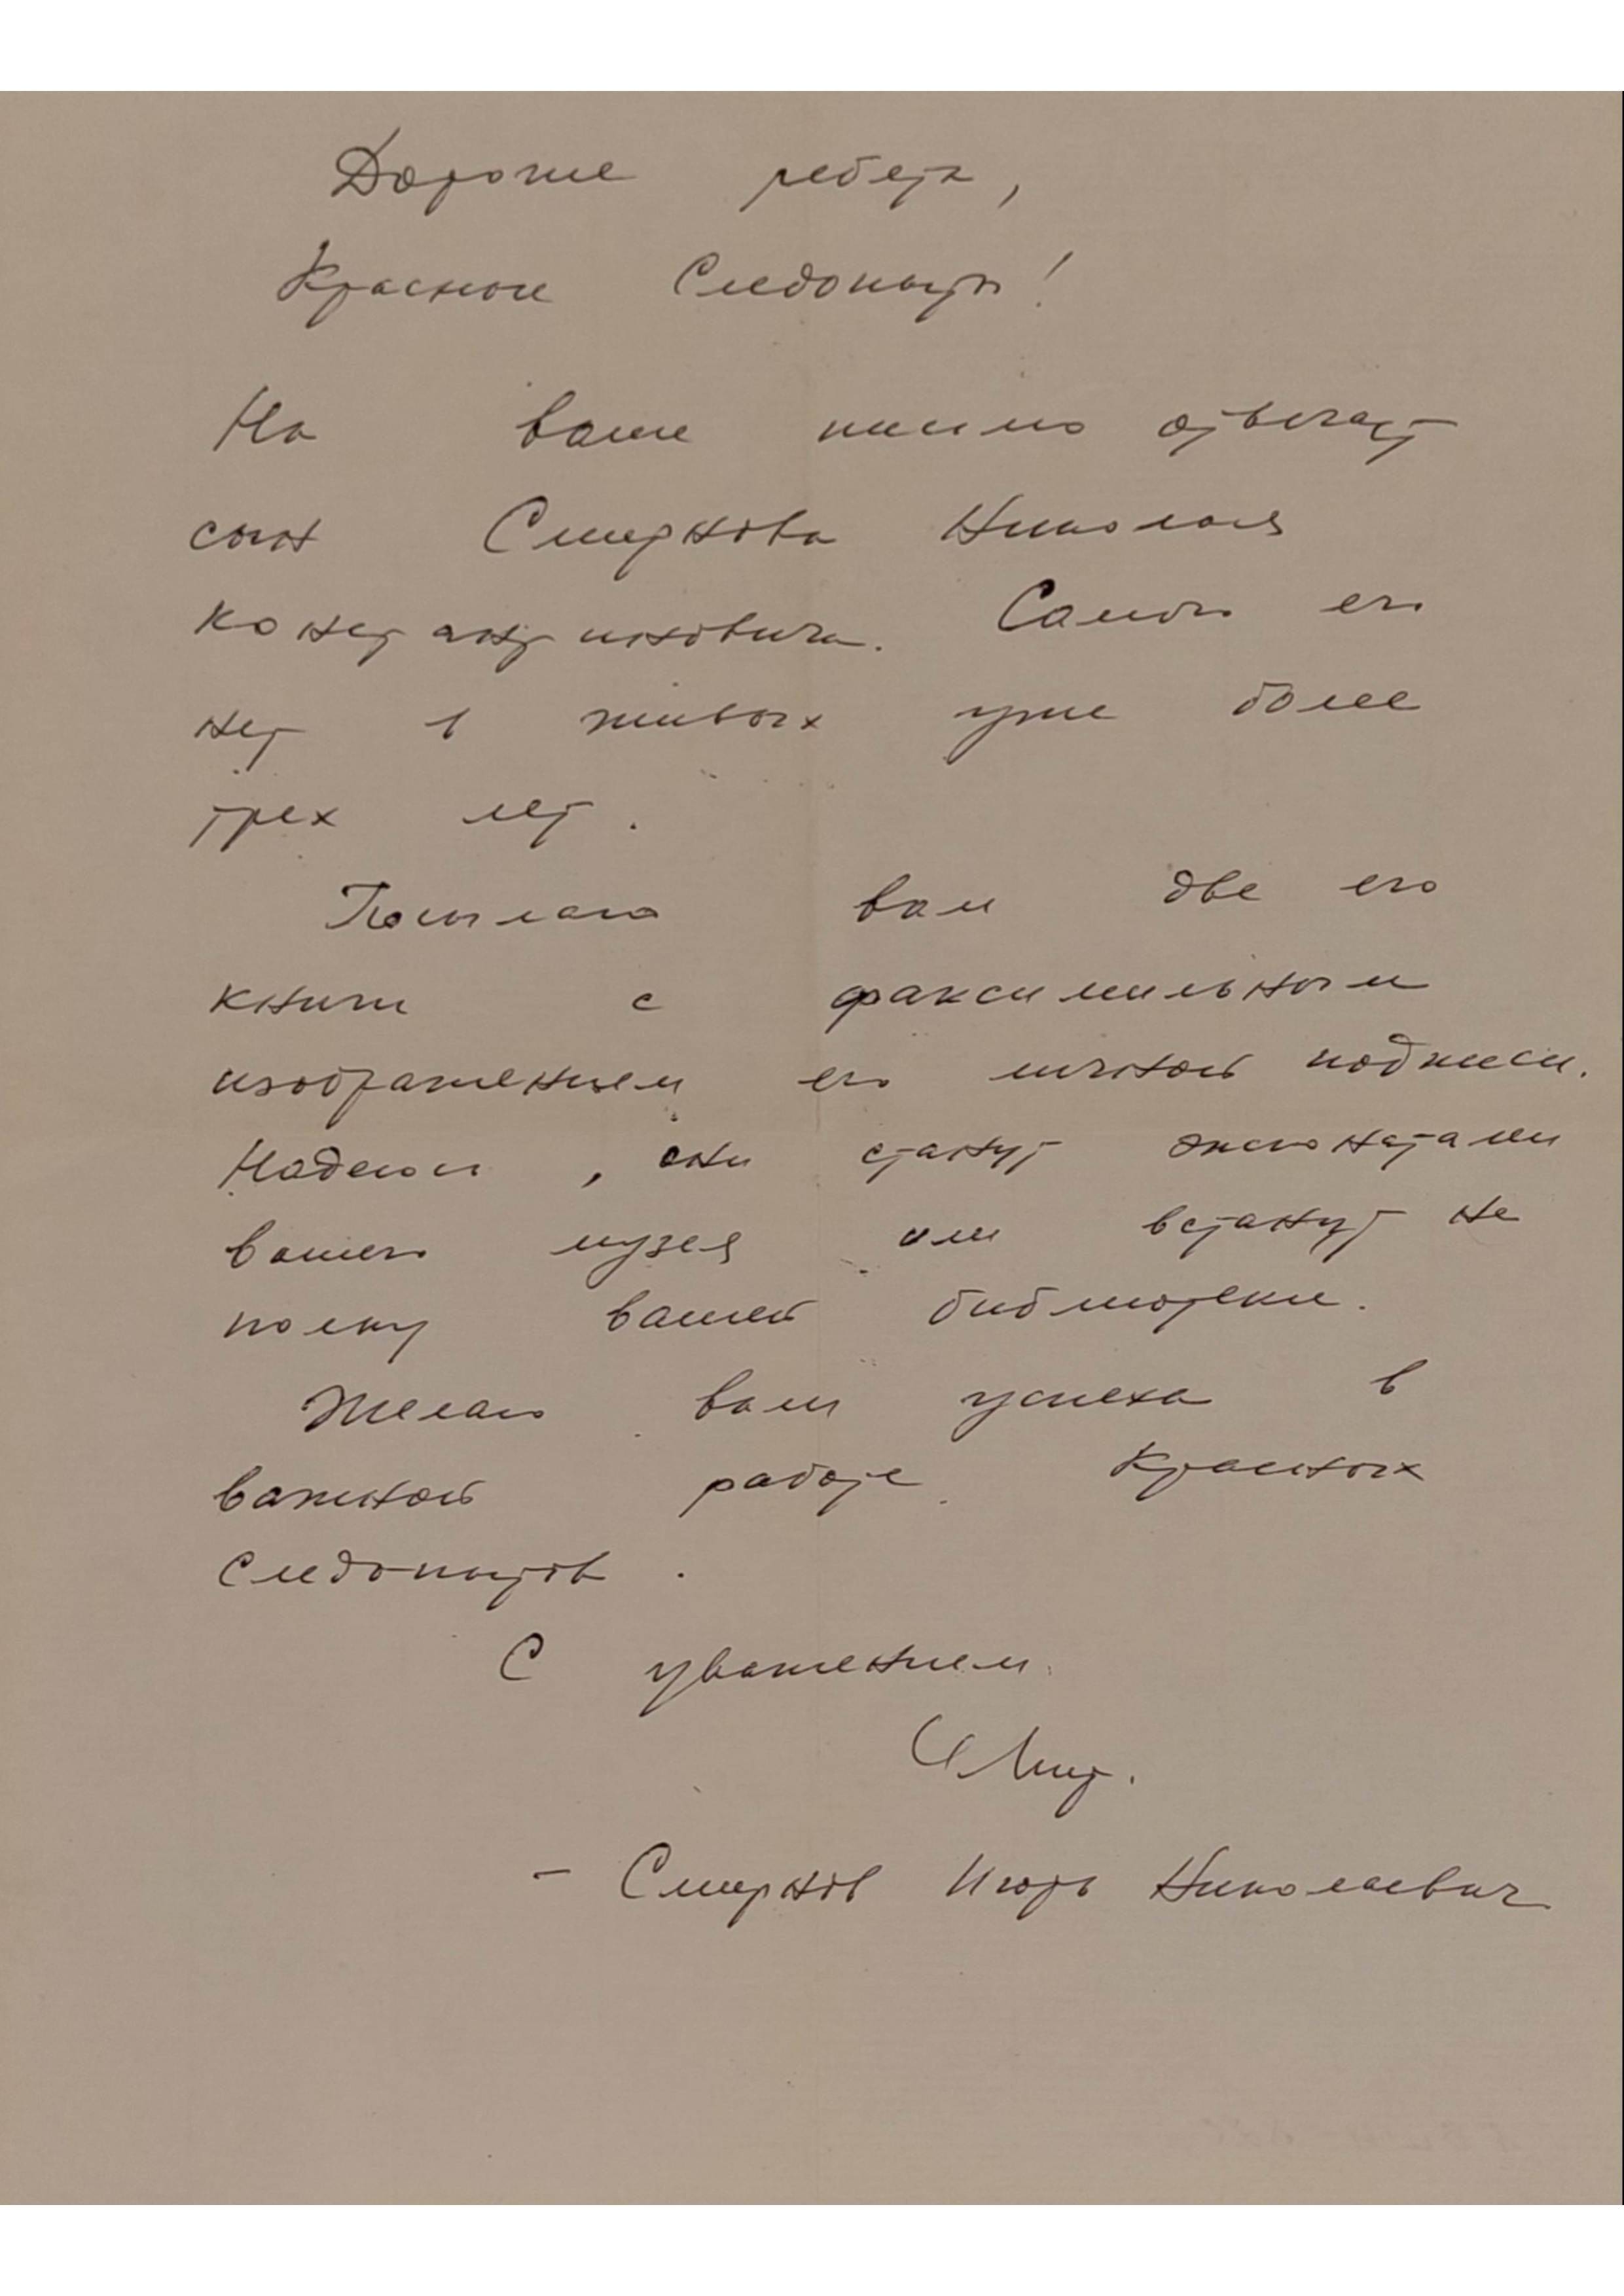 Дорогие ребята,
Красные Следопыты!
На ваше письмо отвечает
сын Смирнова Николая
Константиновича. Самого его
нет в живых уже более
трех лет.
Посылаю вам две его
книги с факсимильным
изображением его личной подписи.
Надеюсь, они станут экспонатами
вашего музея или встанут на
полку вашей библиотеки.
Желаю вам успеха в
важной работе Красных
Следопытов.
С уважением.
– Смирнов Игорь Николаевич